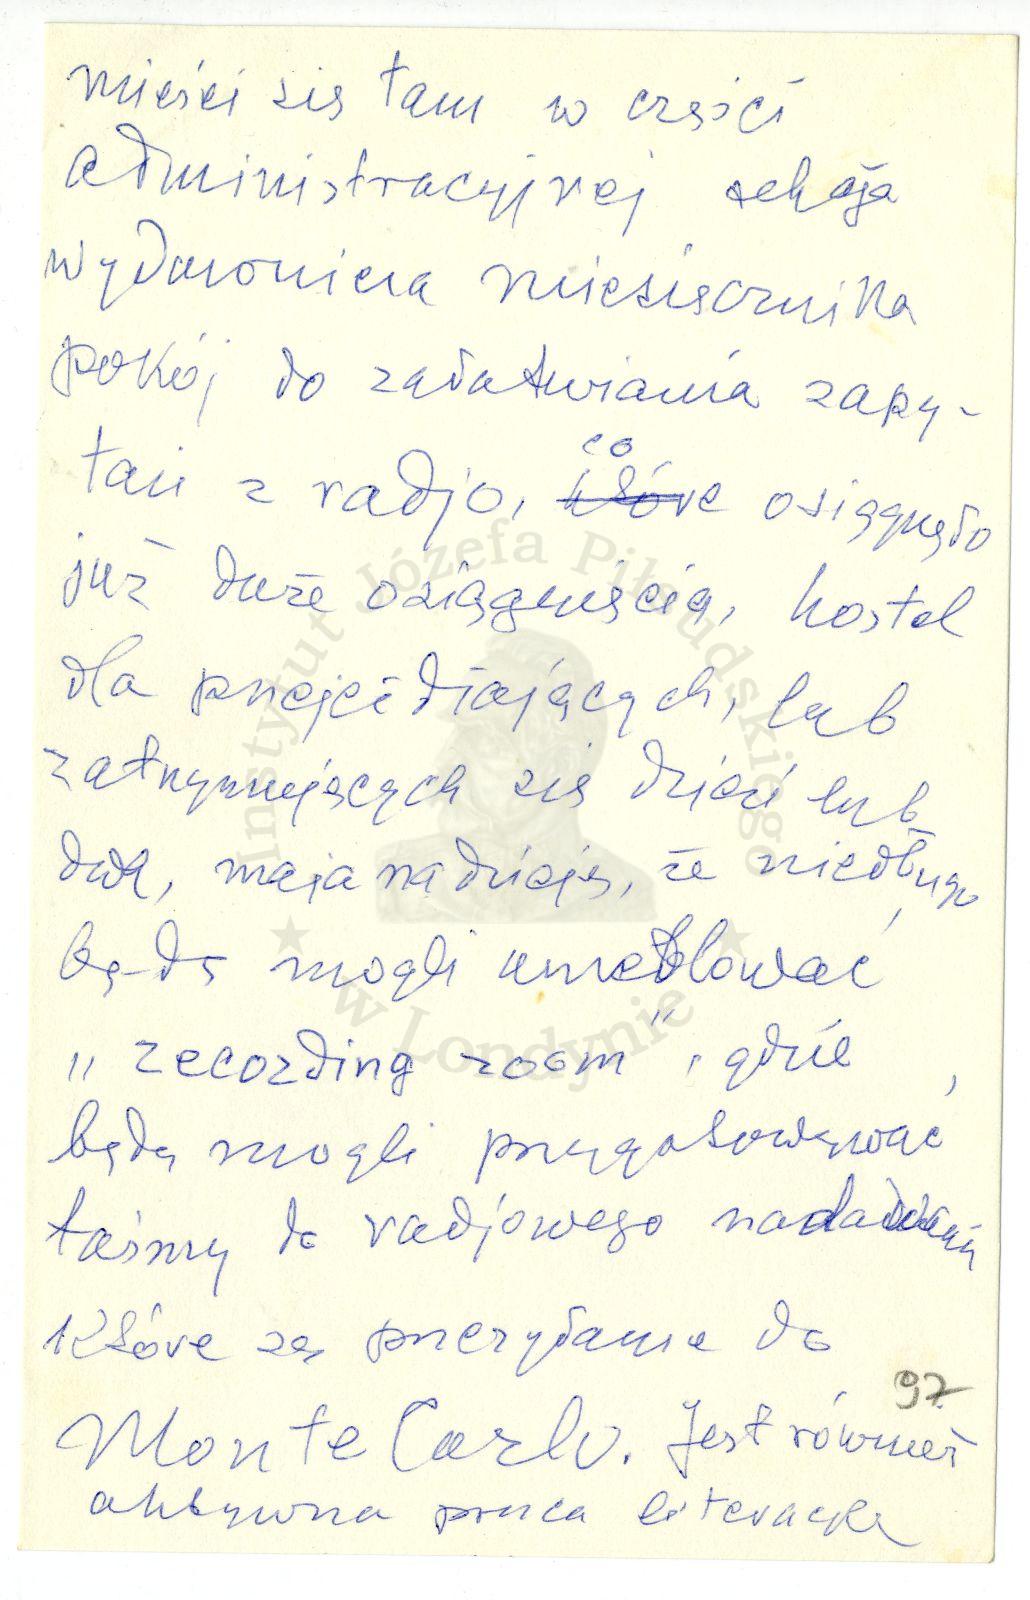 mieści się tam w części
administracyjnej sekcja
wydawnicza miesięcznika
pokój do załatwiania zapy-
tań z radjo, co osiągnęło
już duże osiągnięcia, hostel
dla przejeżdżających, lub
zatrzymujących się dzień lub
dwa, mają nadzieję, że niedługo
będą mogli umeblować
"recording room", gdzie
będą mogli przygotowywać
taśmy do radjowego nadawania
które są przesyłane do
97
Monte Carlo. Jest również
aktywna praca literacka
Instytut Józefa Piłsudskiego
w Londynie